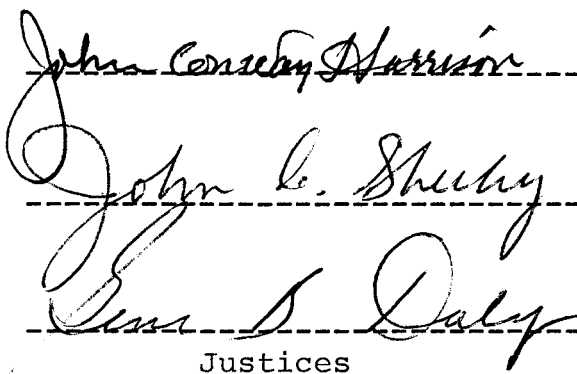 John Conway Harrison
John C. Sheehy
Gene B Daly
Justices